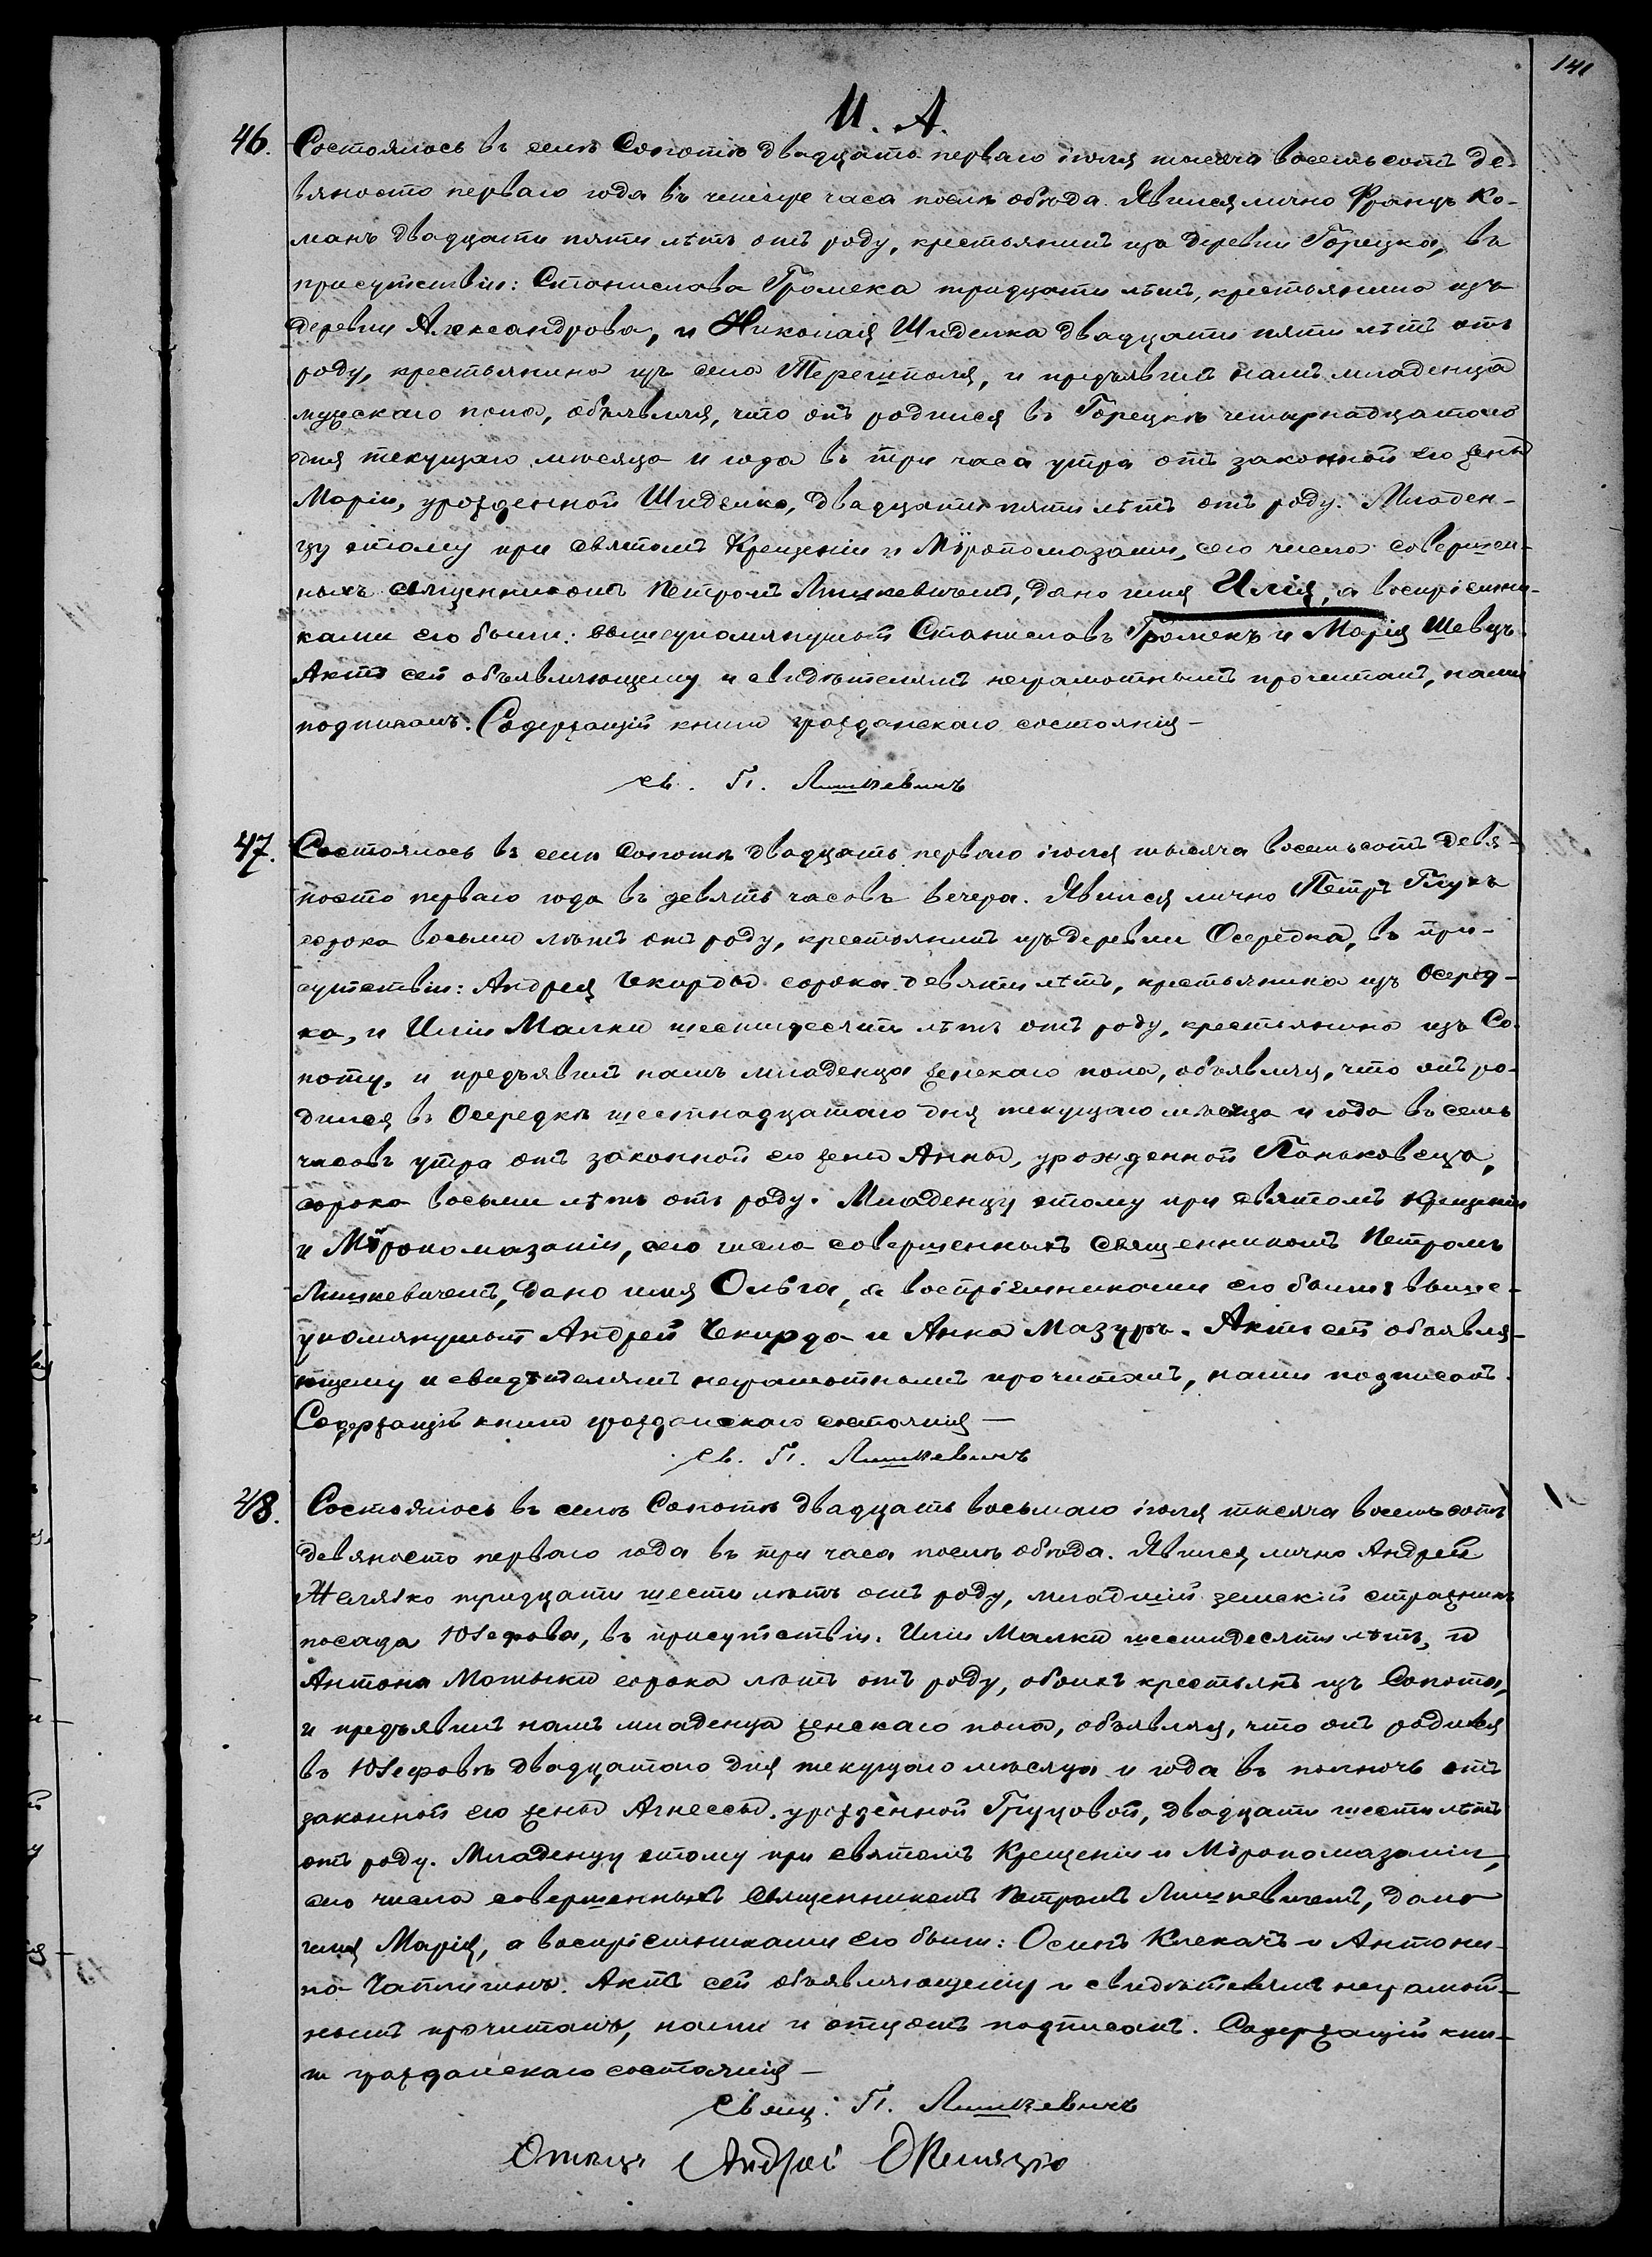 141
И. А.
46. Состоялось въ селѣ Сопотѣ двадцать перваго іюля тысяча восемьсотъ де-
вяносто перваго года въ четыре часа послѣ обѣда. Явился лично Францъ Ко-
манъ двадцати пяти лѣтъ отъ роду, крестьянинъ изъ деревни Горецка, въ
присутствіи: Станислава Громека тридцати лѣтъ, крестьянина изъ
деревни Александрова, и Николая Шиделка двадцати пяти лѣтъ отъ
роду, крестьянина изъ села Терешполя, и предъявилъ намъ младенца
мужскаго пола, объявляя, что онъ родился въ Горецкѣ четырнадцатаго
дня текущаго мѣсяца и года въ три часа утра отъ законной его жены
Маріи, урожденной Шиделко, двадцати пяти лѣтъ отъ роду. Младен-
цу этому при святомъ Крещеніи и Мѵропомазаніи, сего числа совершен-
ныхъ священникомъ Петромъ Лишкевичемъ, дано имя Илія, а воспріемни-
ками его были: вышеупомянутый Станиславъ Громекъ и Марія Шевцъ.
Актъ сей объявляющему и свидѣтелямъ неграмотнымъ прочитанъ, нами
подписанъ. Содержащій книги гражданскаго состоянія –
св. П. Лишкевичъ
47. Состоялось въ селѣ Сопотѣ двадцать перваго іюля тысяча восемьсотъ девя-
носто перваго года въ девять часовъ вечера. Явился лично Петръ Глухъ
сорока восьми лѣтъ отъ роду, крестьянинъ изъ деревни Осередка, въ при-
сутствіи: Андрея Чекирды сорока девяти лѣтъ, крестьянина изъ Осеред-
ка, и Иліи Малки шестидесяти лѣтъ отъ роду, крестьянина изъ Со-
поту, и предъявилъ намъ младенца женскаго пола, объявляя, что онъ ро-
дился въ Осередкѣ шестнадцатаго дня текущаго мѣсяца и года въ семь
часовъ утра отъ законной его жены Анны, урожденной Паньковецъ,
сорока восьми лѣтъ отъ роду. Младенцу этому при святомъ Крещеніи
и Мѵропомазаніи, сего числа совершенныхъ священникомъ Петромъ
Лишкевичемъ, дано имя Ольга, а воспріемниками его были: выше-
упомянутый Андрей Чекирда и Анна Мазуръ. Актъ сей объявля-
ющему и свидѣтелямъ неграмотнымъ прочитанъ, нами подписанъ.
Содержащій книги гражданскаго состоянія —
св. П. Лишкевичъ
48. Состоялось въ селѣ Сопотѣ двадцать восьмаго іюля тысяча восемьсотъ
девяносто перваго года въ три часа послѣ обѣда. Явился лично Андрей
тридцати шести лѣтъ отъ роду, младшій земскій стражникъ
посада Юзефова, въ присутствіи: Иліи Малки шестидесяти лѣтъ, и
Антона Мотыки сорока лѣтъ отъ роду, обоихъ крестьянъ изъ Сопота,
и предъявилъ намъ младенца женскаго пола, объявляя, что онъ родился
въ Юзефовѣ двадцатаго дня текущаго мѣсяца и года въ полночь отъ
законной его жены Агнессы, урожденной Груцовой, двадцати шести лѣтъ
отъ роду. Младенцу этому при святомъ Крещеніи и Мѵропомазаніи,
сего числа совершенныхъ священникомъ Петромъ Лишкевичемъ, дано
имя Марія, а воспріемниками его были: Осипъ Клекачъ и Антони-
на Актъ сей объявляющему и свидѣтелямъ неграмот-
нымъ прочитанъ, нами и отцомъ подписанъ. Содержащій кни-
ги гражданскаго состоянія –
Свящ. П. Лишкевичъ
Отецъ Андрей